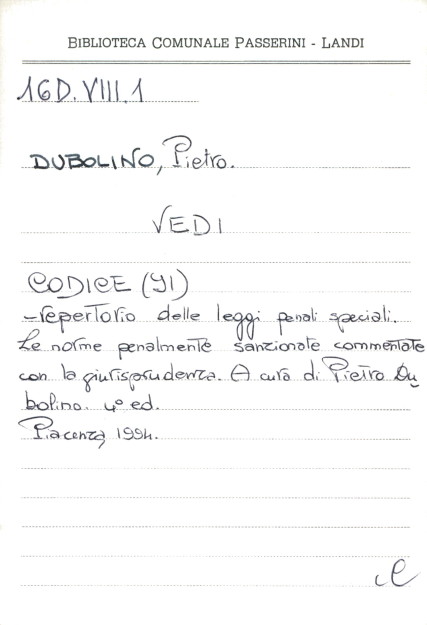 BIBLIOTECA COMUNALE PASSERINI - LANDI
16D.VIII.1
DUBOLINO, Pietro.
VEDI
CODICE (YI)
-repertorio delle leggi penali speciali.
Le norme penalmente sanzionate commentate
con la giurisprudenza. A cura di Pietro Du
bolino. 4° ed.
Piacenza, 1994.